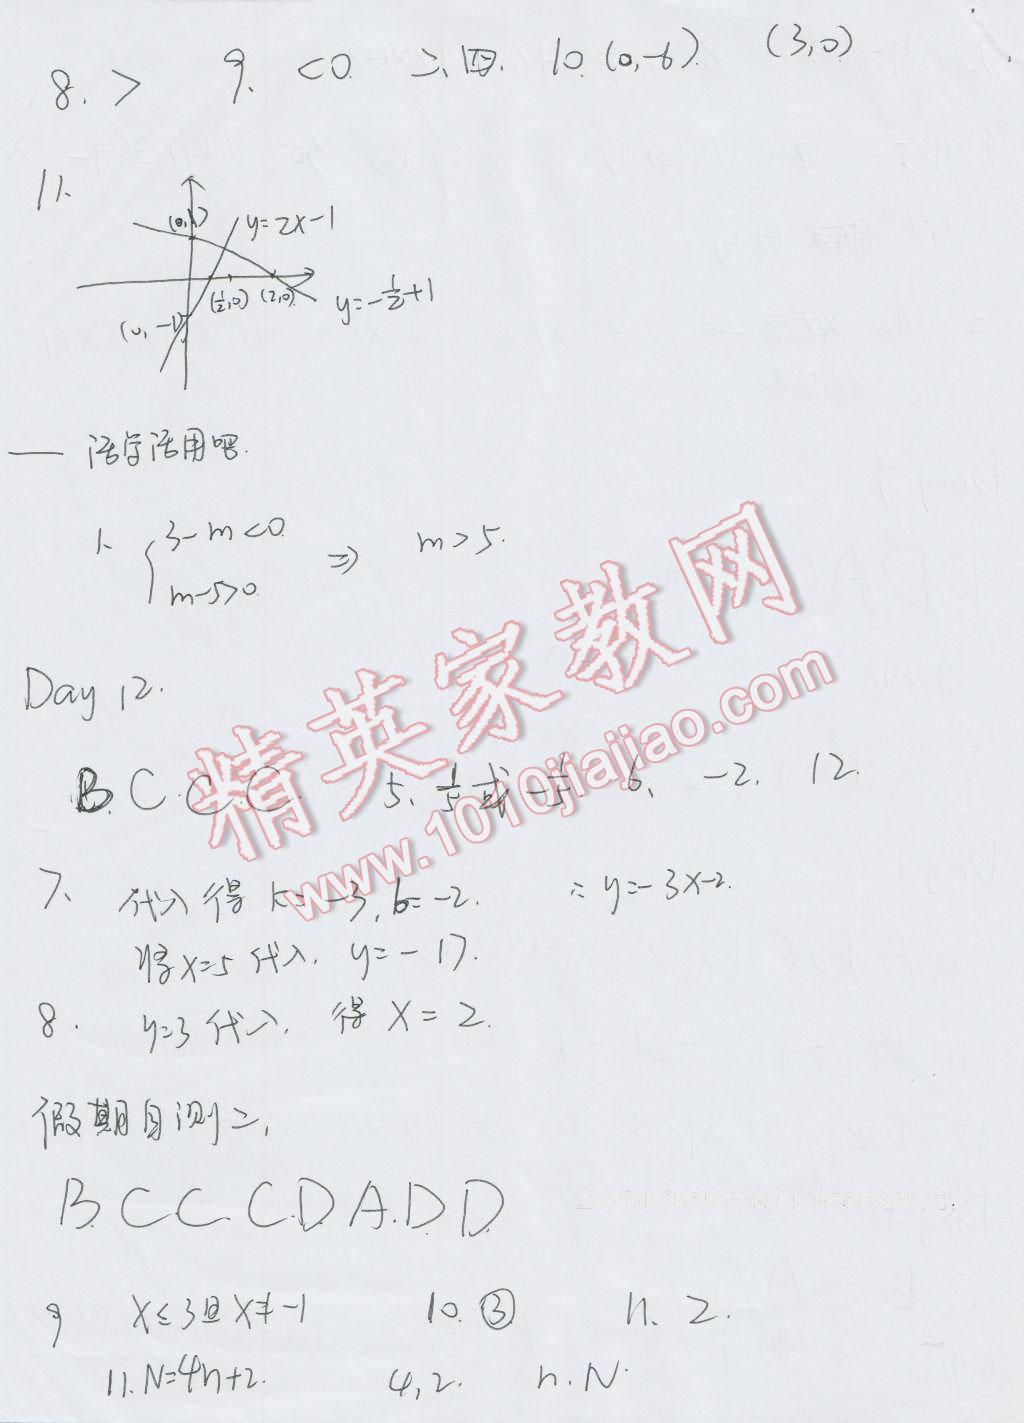 8. > 9. <0 二、四. 10. (0,-6) (3,0)
11.
(0,1) y=2x-1
(½,0) (2,0) y=-½+1
(0,-1)
一 活学活用吧.
1. { 3-m<0
m-5>0 ⇒ m>5.
Day 12.
B. C. C. C. 5、1/5或-1/5 6、 -2. 12.
7、 代入得 k=-3, b=-2. ∴y=-3x-2.
将x=5代入, y=-17.
8. y=3代入, 得 x=2.
假期自测二,
B. C C. C. D A. D D.
9 x≤3且x≠-1 10. ③ n. 2.
11. N=4n+2. 4, 2. n. N.
精英家教网
www.1010jiajiao.com